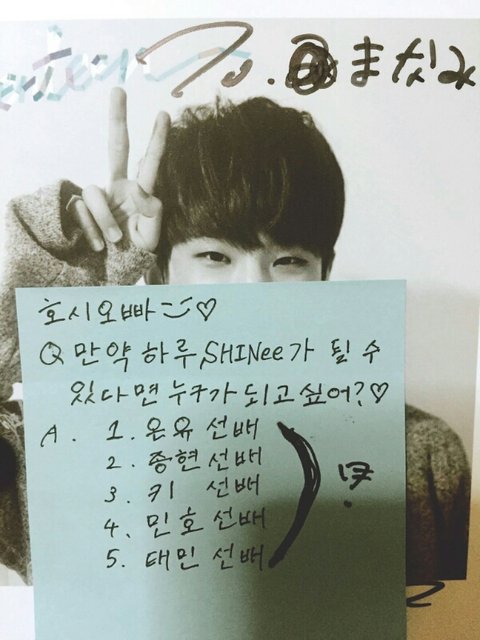 To. まなみ
호시오빠 ♡
Q 만약 하루, SHINee가 될 수
있다면 누구가 되고싶어?♡
A. 1. 온유 선배
2. 종현 선배
3. 키 선배
4. 민호 선배
5. 태민 선배